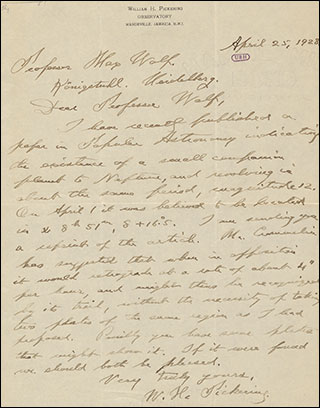 WILLIAM H. PICKERING
OBSERVATORY
MANDEVILLE, JAMAICA, B.W.I.
April 25, 1928
Professor Max Wolf,
Königstuhl, Heidelberg.
Dear Professor Wolf,
I have recently published a
paper in Popular Astronomy indicating
the existence of a small companion
planet to Neptune, and revolving in
about the same period, magnitude 12.
On April 1 it was believed to be located
in α 8h 51m, δ +16°.5. I am sending you
a reprint of the article. Mr. Crommelin
has suggested that when in opposition
it would retrograde at a rate of about 4"
per hour, and might thus be recognized
by its trail, without the necessity of taking
two photos of the same region as I had
proposed. Possibly you have some plates
that might show it. If it were found
we should both be pleased.
Very truly yours,
W. H. Pickering.